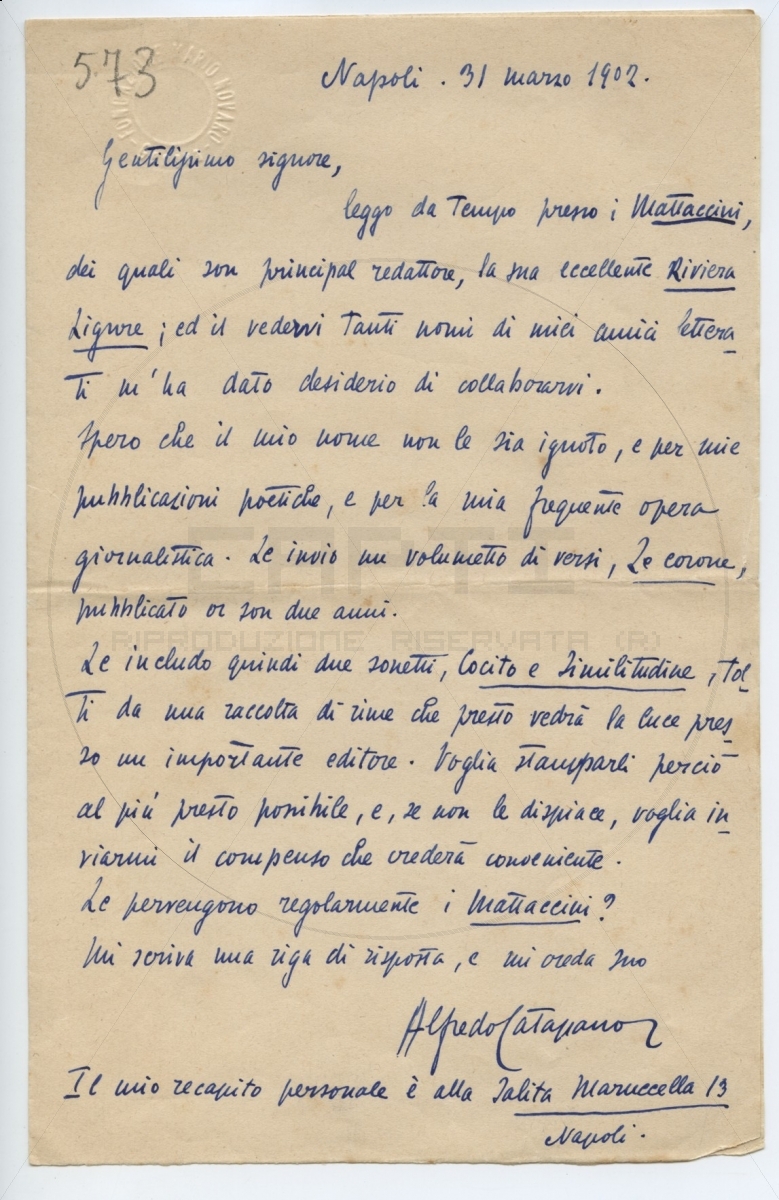 573
FONDAZIONE MARIO NOVARO
Napoli. 31 marzo 1902.
Gentilissimo signore,
leggo da tempo presso i Mattaccini,
dei quali son principal redattore, la sua eccellente Riviera
Ligure; ed il vedervi tanti nomi di miei amici lettera-
ti m'ha dato desiderio di collaborarvi.
Spero che il mio nome non le sia ignoto, e per mie
pubblicazioni poetiche, e per la mia frequente opera
giornalistica. Le invio un volumetto di versi, Le corone,
pubblicato or son due anni.
Le includo quindi due sonetti, Cocito e Similitudine, tol-
ti da una raccolta di rime che presto vedrà la luce pres-
so un importante editore. Voglia stamparli perciò
al più presto possibile, e, se non le dispiace, voglia in-
viarmi il compenso che crederà conveniente.
Le pervengono regolarmente i Mattaccini?
Mi scriva una riga di risposta, e mi creda suo
Alfredo Catapano
Il mio recapito personale è alla Salita Maruccella 13
Napoli.
RIPRODUZIONE RISERVATA (R)